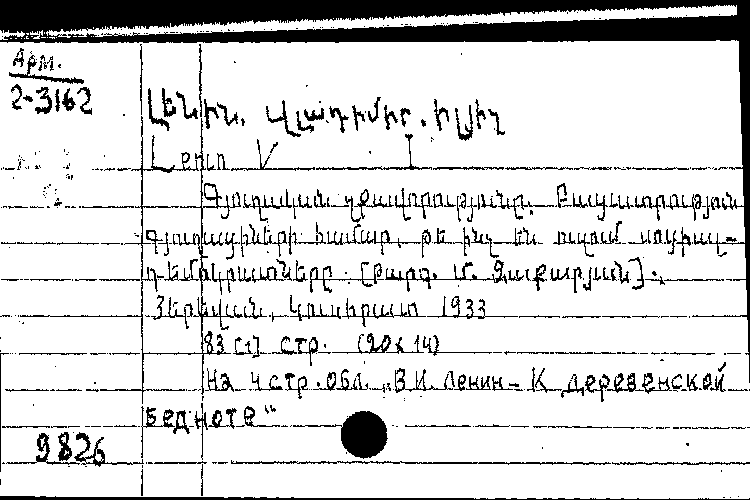 Арм.
2-3162
Լենին, Վլադիմիր Իլյիչ
Lenin V I
Գյուղական չքավորությունը. Բացատրություն
գյուղացիների համար, թե ինչ են ուզում սոցիալ-
դեմոկրատները. [Թարգ. Մ. Զաքարյան].
Յերեվան, Կուսհրատ 1933
83 [1] стр. (20x14)
На 4 стр. обл. „В.И. Ленин - К деревенской
бедноте“
9826